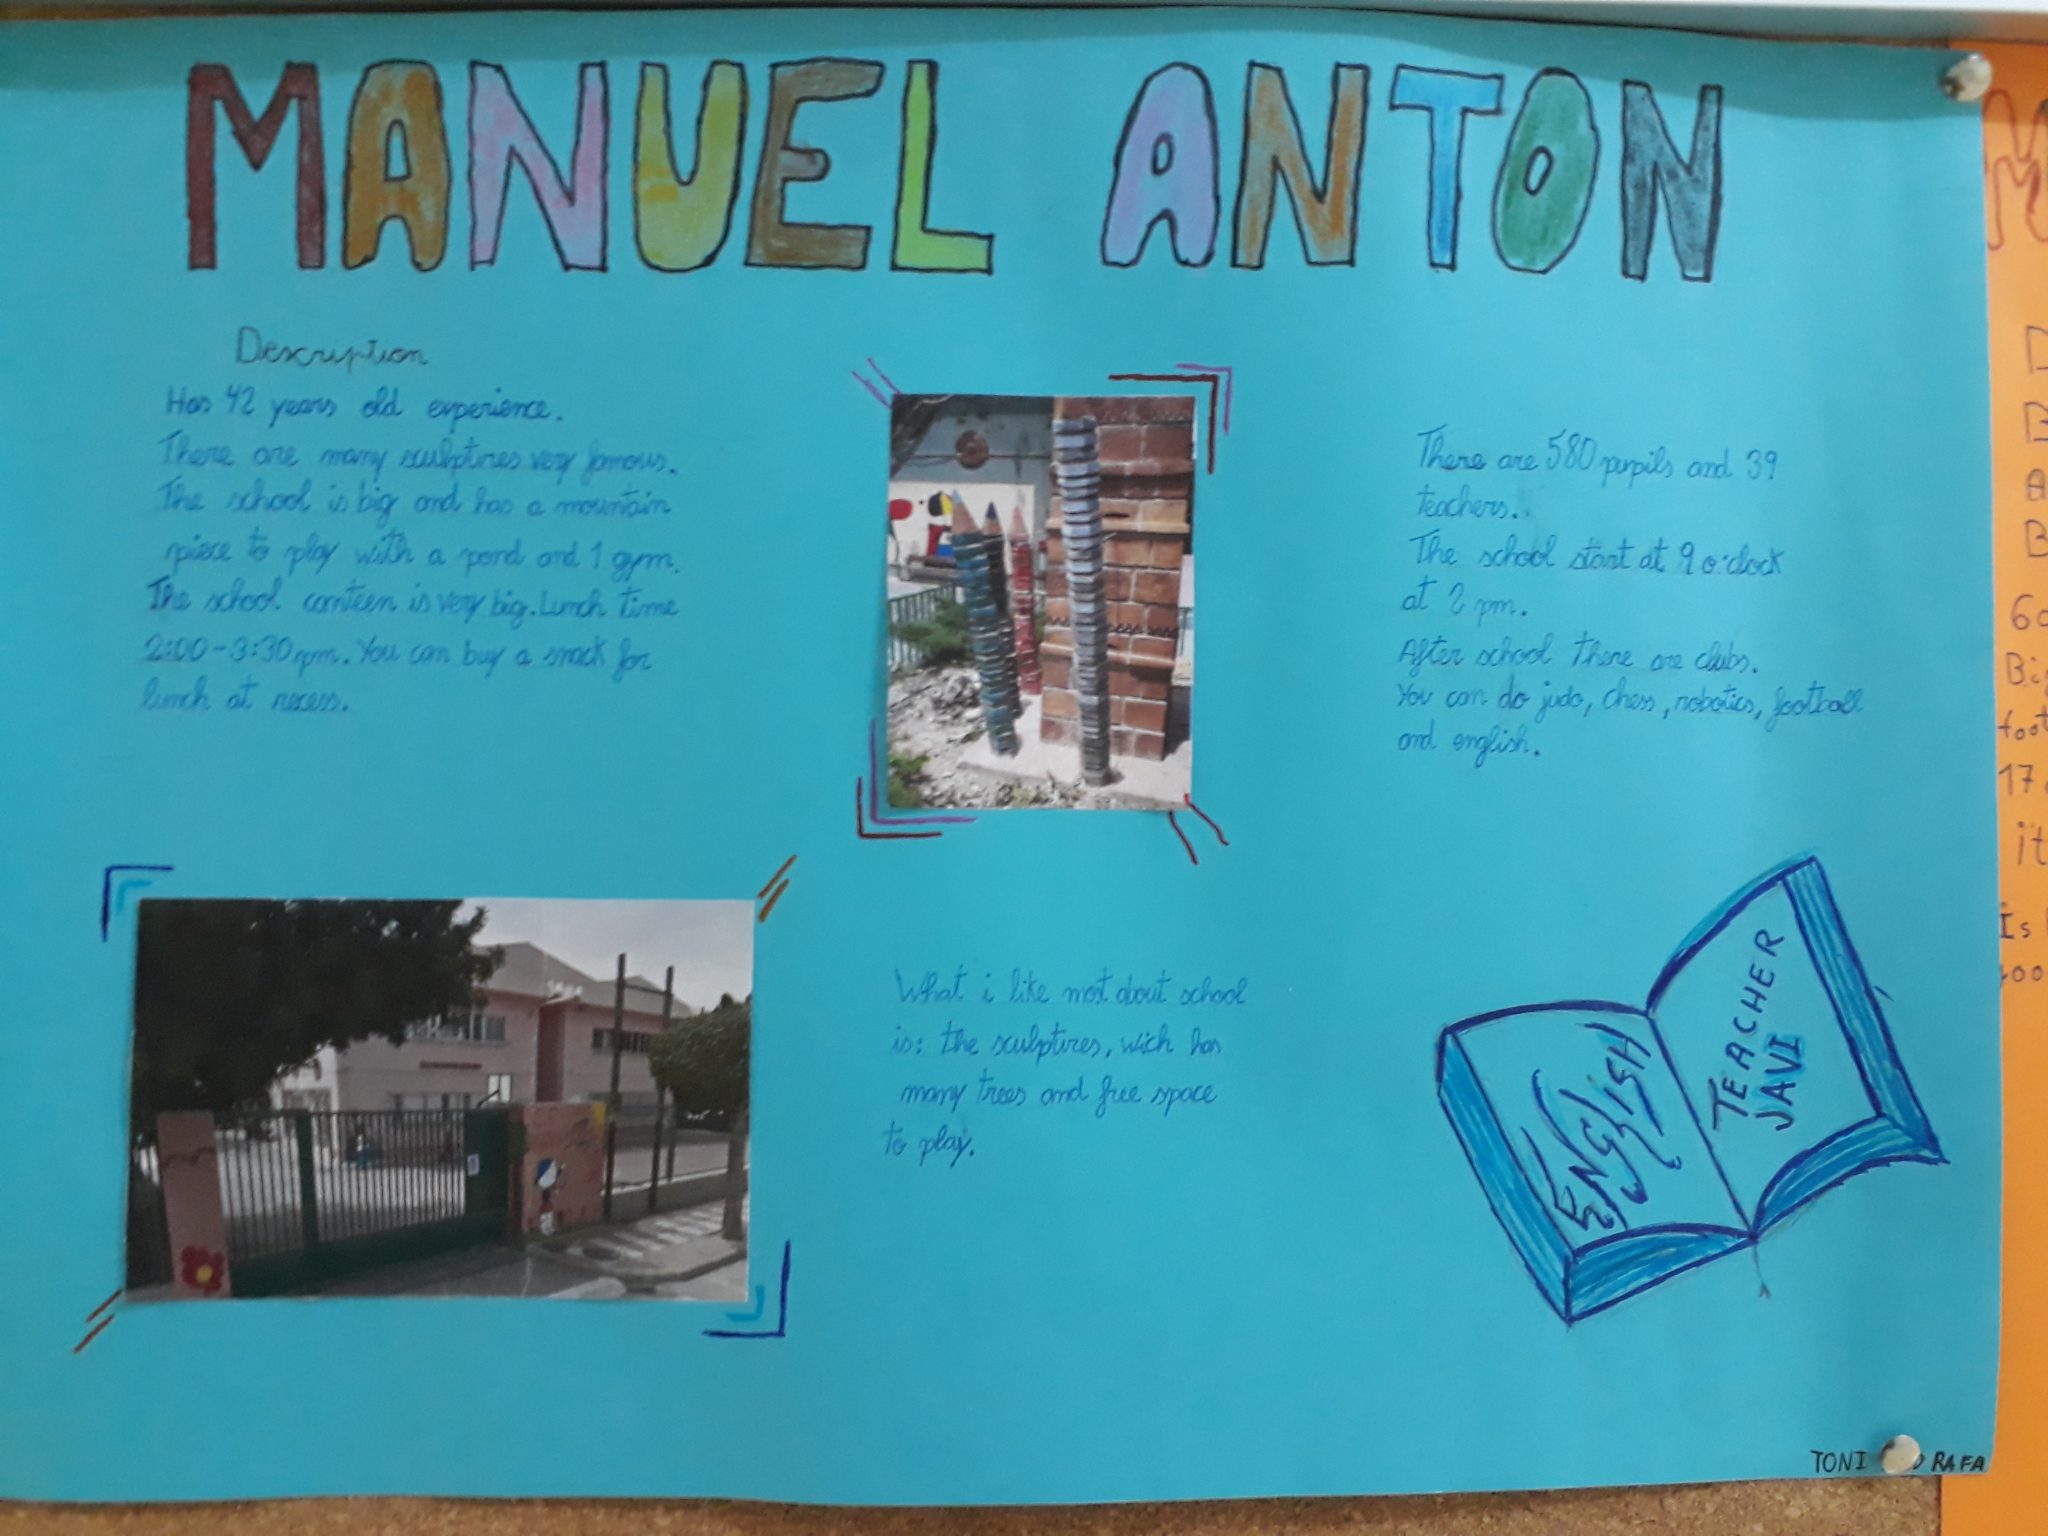 MANUEL ANTON
Description
Has 42 years old experience.
There are many sculptures very famous.
The school is big and has a mountain
piece to play with a pond and 1 gym.
The school canteen is very big. Lunch time
2:00-3:30 pm. You can buy a snack for
lunch at recess.
There are 580 pupils and 39
teachers.
The school start at 9 o'clock
at 2 pm.
After school there are clubs.
You can do judo, chess, robotics, football
and english.
What i like most about school
is: the sculptures, wich has
many trees and free space
to play.
ENGLISH
TEACHER
JAVI
TONI
RAFA
17
Is